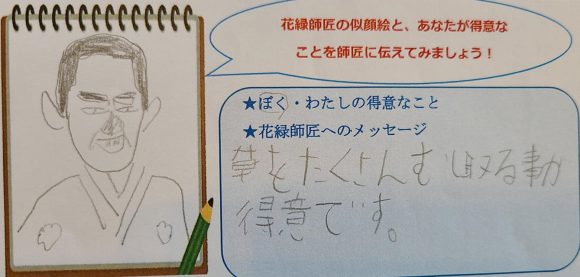 花緑師匠の似顔絵と、あなたが得意な
ことを師匠に伝えてみましょう！
★ぼく・わたしの得意なこと
★花緑師匠へのメッセージ
草をたくさんむしり取る事が
得意です。